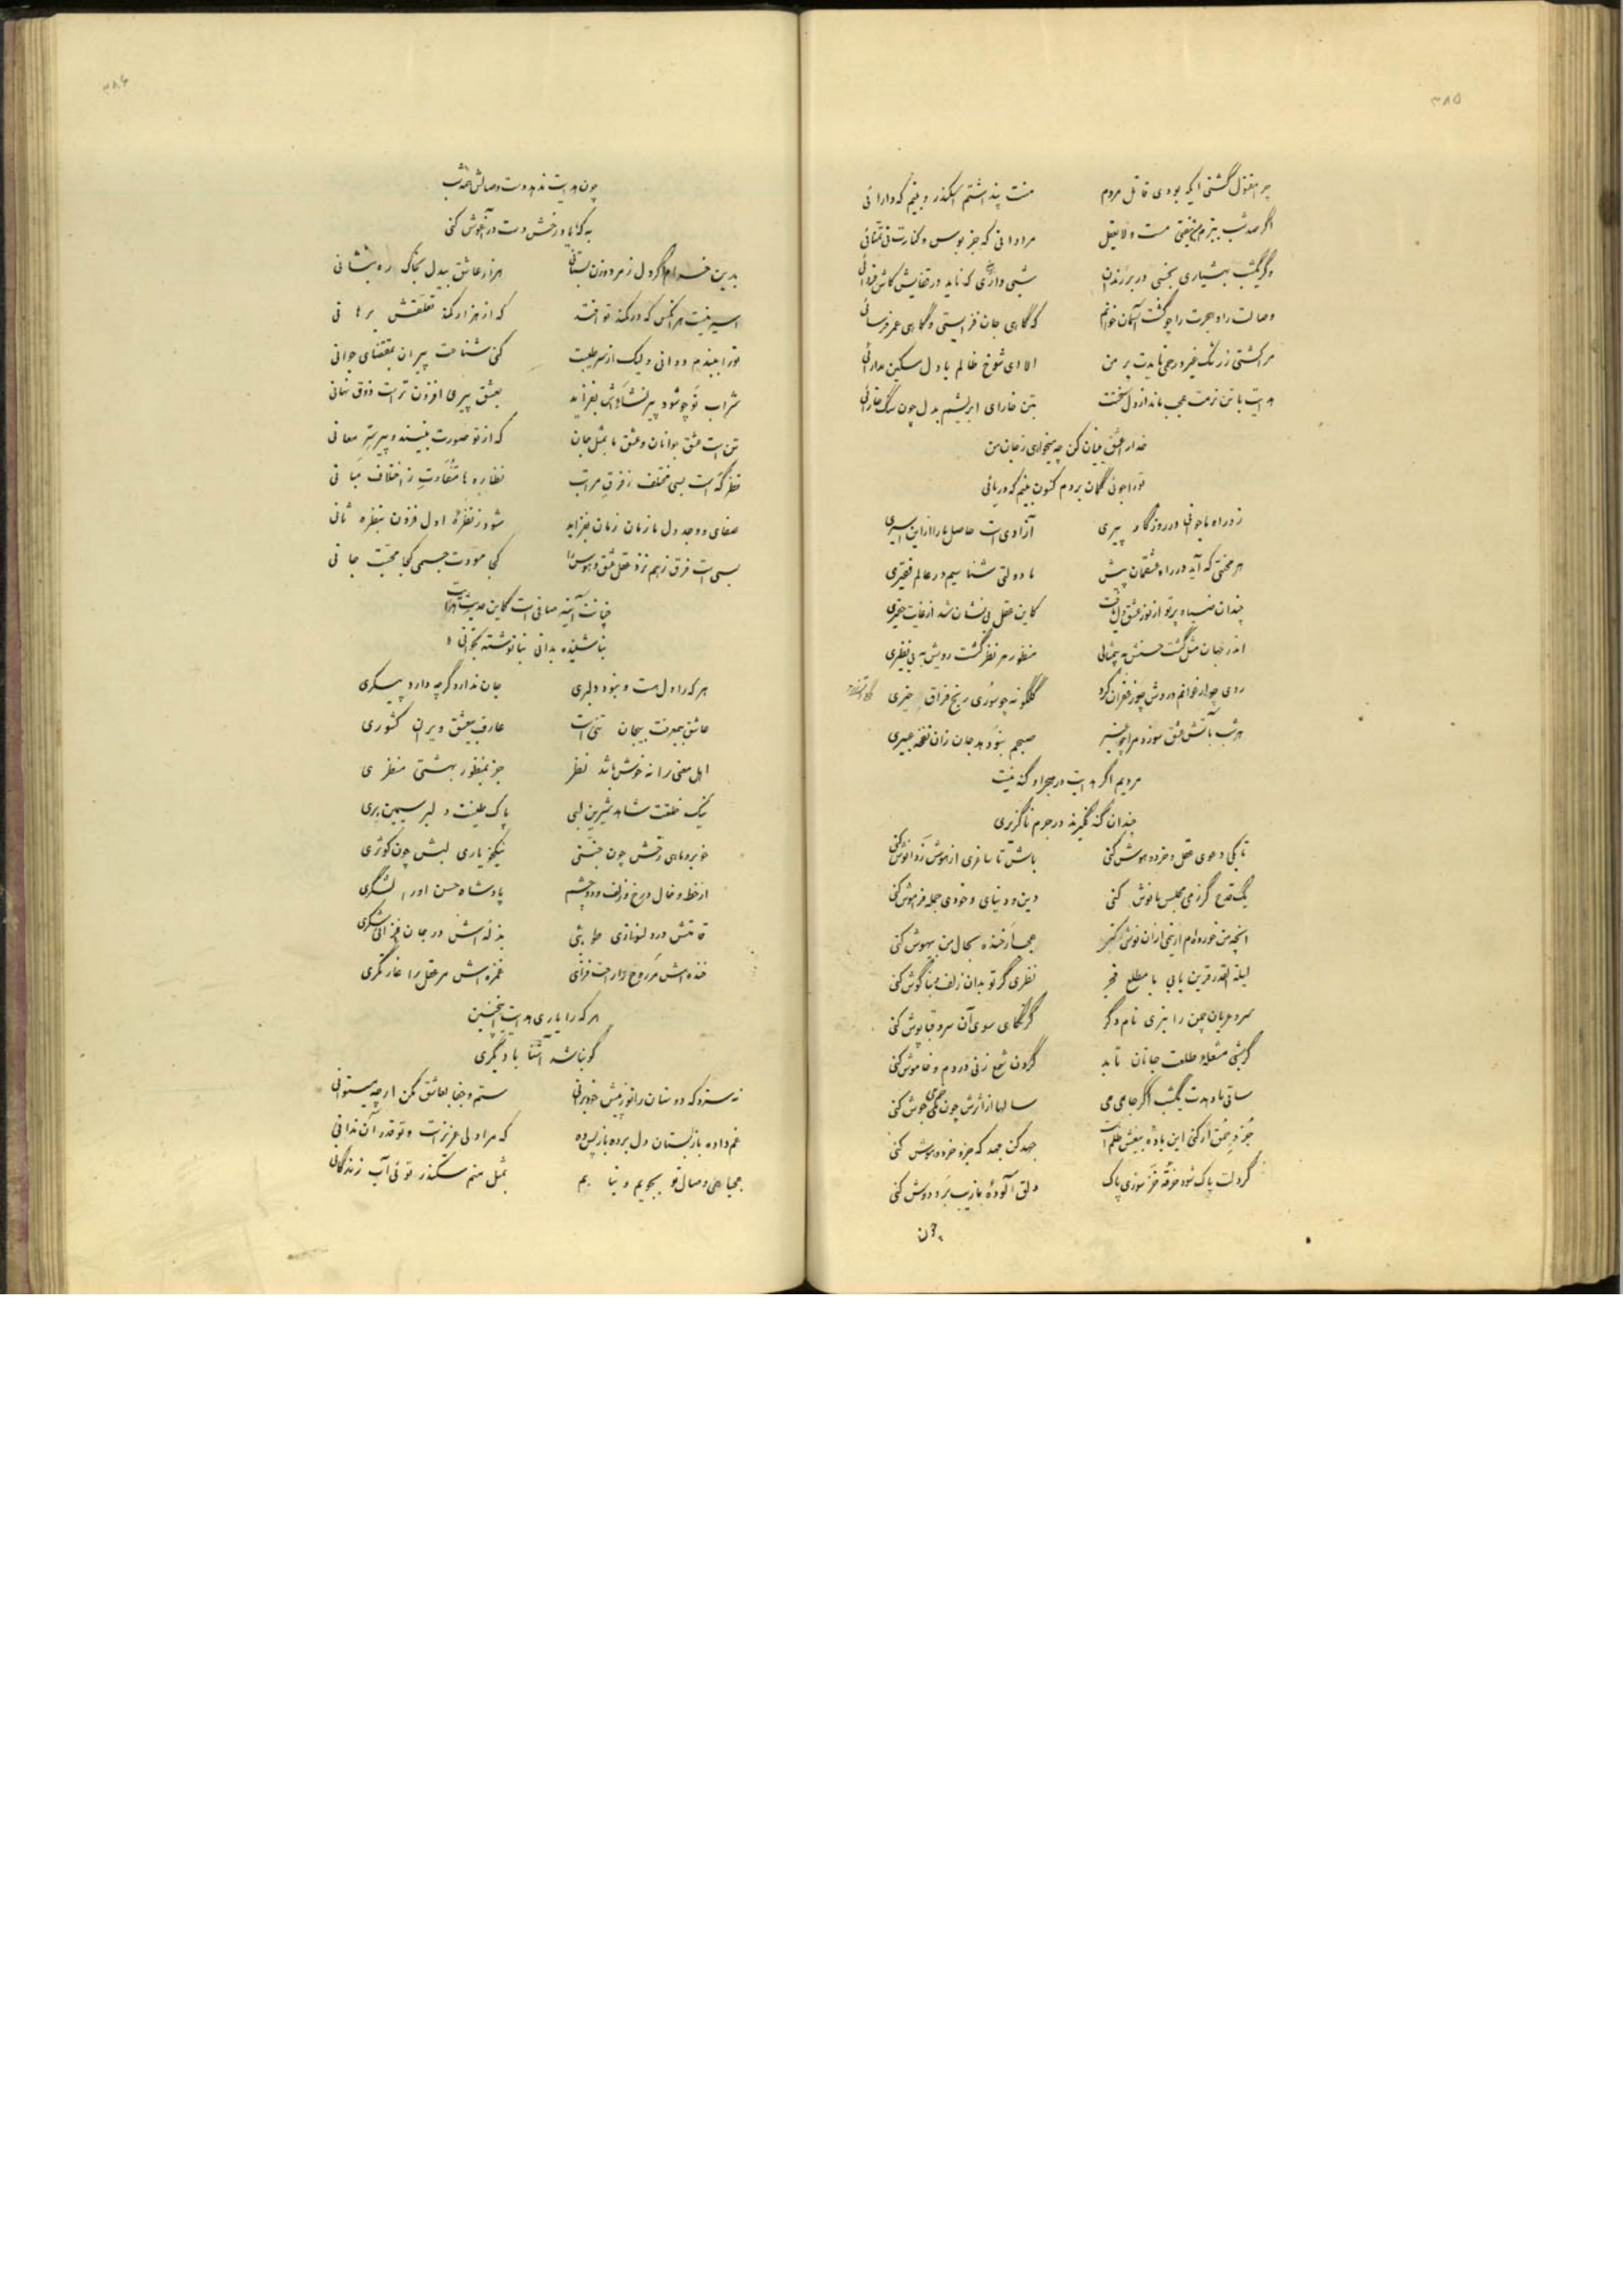 ۳۸۵
چرا مقتول گشتی ایکه بودی قاتل مردم منت پنداشتم اسکندر و بینم که دارائی
اگر صد شب ببزم من نخفتی مست و لایعقل مرادانی که جز بوس و کنارت نی تمنائی
وگر یکشب بهشیاری بخسبی در بر رندان شبی داری که ناید در قفایش کاش فردائی
وصالت را و هجرت را چو گشت آسمان خوانم که گاهی جان فزایستی و گاهی عمر فرسائی
مر کشتی ز رنک غیر و رحمی نایدت بر من الا ای شوخ ظالم یا دل سکین نداری
هدایت با تن نرمت عجب ماند از دل سختت بتن خارای ابریشم بدل چون سنگ خارائی
خدا را عشق بنیان کن چه میخواهی ز جان من
تو را جوئی گمان بردم کنون بینم که دریائی
ز در اه با جوانی در روزگار پیری آزادی است حاصل ما را از این اسیری
هر محنتی که آید در راه عشقمان پیش ما دولتی شناسیم در عالم فقیری
چندان ضیاء پرتو از نور عشق دل یافت کاین عقل بی نشان شد از غایت حقیری
اندر جهان مثل گشت حسنش به بیمثالی منظور هر نظر گشت رویش به بی نظیری
روی چو ارغوانم دردش چو زعفران کرد گلگونه چو سوری رنج فراق خیری
هر شب بآتش عشق سوزد مرا چو عنبر صبحم بشود بد جان زان نفخه عبیری
مردیم اگر هدایت در هجر او گنه نیست
چندان گنه نگیرند در جرم ناگزیری
تا بکی دعوی عقل و خرد و هوش کنی باش تا ساغری از هوش ربا نوش کنی
یک قدح گر ز می مجلس ما نوش کنی دین و دنیای و خودی جمله فراموش کنی
آنچه من خورده ام ار نیمی از آن نوش کنی عجب ار خنده بحال من بیهوش کنی
لیلة القدر قرین یابی با مطلع فجر نظری گر تو بدان زلف و بناگوش کنی
سرو عریان چمن را نبری نام دگر گر نگاهی سوی آن سرو قباپوش کنی
گر شبی مشعله طلعت جانان تابد گردن شمع زنی در دم و خاموش کنی
ساقی ما دهدت یکشب اگر جامی می سالها از اثرش چون خم می جوش کنی
جز و بعمق ار کنی این باده بیغش ظلم است جهد کن جهد که جز و خرد و هوش کنی
گر دلت پاک شود خرقه خز سوزی پاک دلق آلوده بازیب بر و دوش کنی
چون
۳۸۶
چون هدایت ندهد دست وصالش همه شب
به که با یاد رخش دست در آغوش کنی
بدین خرام اگر دل ز مرد و زن بستانی هزار عاشق بیدل بخاک ره بنشانی
اسیر نیست هر آنکس که در کمند تو افتد که از هزار کمند تعلقش برهانی
تو را ببندم دوانی ولیک از سر طیبت کنی شناعت پیران بمقتضای جوانی
شراب نو چو شود پیر نشأه اش بفزاید بعشق پیری افزون تر است ذوق نهانی
تن است عشق جوانان و عشق ما بمثل جان که از تو صورت بینند و پیر سر معانی
نظر گه است بسی مختلف ز فرق مراتب نظاره ها متفاوت ز اختلاف مبانی
صفای و وجد دل ما زمان زمان بفزاید شود ز نظره اول فزون بنظره ثانی
بسی است فرق ز هم نزد عقل عشق و هوس را کجا مودت جسمی کجا محبت جانی
چنانت آینه صافی است کاین حدیث هدایت
بناشنیده بدانی بنانوشته بخوانی
هر که را دل هست و نبود دلبری جان ندارد گر چه دارد پیکری
عاشق بیمعرفت بیجان تنی است عارف بیعشق ویران کشوری
اهل معنی را نه خوش باشد نظر جز بمنظور بهشتی منظری
نیک خلقت شاهد شیرین لبی پاک طینت دلبر سیمین بری
خوبروماهی رخش چون جنتی نیکخویاری لبش چون کوثری
از خط و خال و رخ و زلف و دو چشم پادشاه حسن او را لشگری
قامتش در دلنوازی طوبئی بذله اش در جان فزائی شکری
خنده اش مر روح را راحت فزای غمزه اش مر عقل را غارتگری
هر که را یاری هدایت اینچنین
گو نباشد آشنا با دیگری
نه سزد که دوستان را تو ز پیش خود برانی ستم و جفا بعاشق مکن ار چه میتوانی
غم داده باز بستان دل برده باز پس ده که مرا دلی عزیز است و تو قدر آن ندانی
وصال تو بجویم و نیابم بمثل منم سکندر تو ئی آب زندگانی